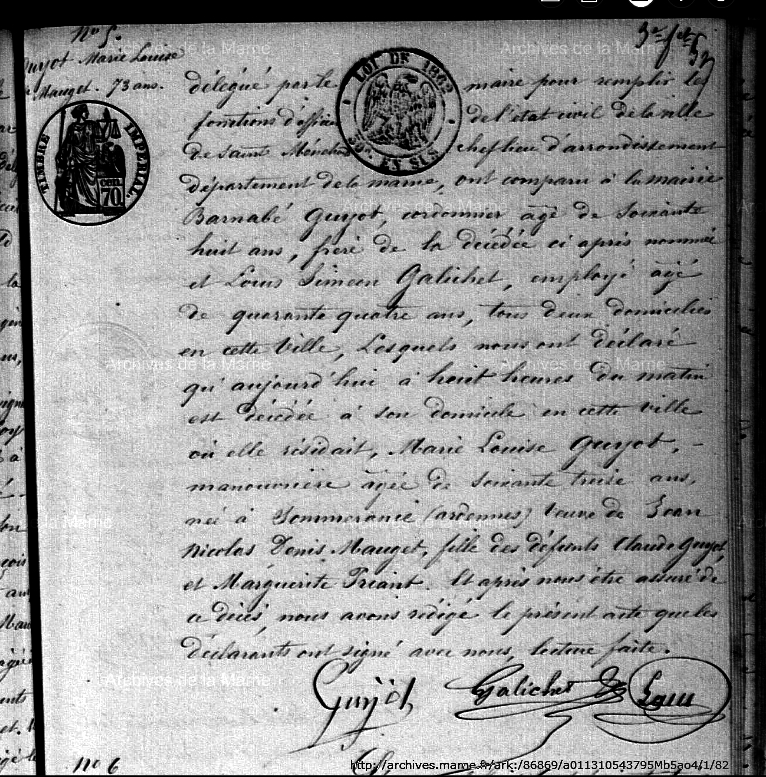 N° 5.
Guyot Marie Louise
Mauget. 73 ans.
délégué par le maire pour remplir les
fonctions d'officier de l'état civil de la ville
de Sainte Ménehould chef lieu d'arrondissement
département de la marne, ont comparu à la mairie
Barnabé Guyot, cordonnier âgé de soixante
huit ans, frère de la décédée ci après nommée
et Louis Simeon Galichet, employé âgé
de quarante quatre ans, tous deux domiciliés
en cette Ville, Lesquels nous ont déclaré
qu'aujourd'hui à huit heures du matin
est décédée à son domicile en cette ville
où elle résidait, Marie Louise Guyot,
manouvrière âgée de soixante treize ans,
née à Sommerance (ardennes) Veuve de Jean
Nicolas Denis Mauget, fille des défunts Claude Guyot,
et Marguerite Triant. Et après nous être assuré de
ce décès, nous avons rédigé le présent acte que les
déclarants ont signé avec nous, lecture faite.
Guyot Galichet
N° 6
LOI DE 1862
50c. EN SUS
TIMBRE IMPERIAL
70
Archives de la Marne
http://archives.marne.fr/ark:/86869/a011310543795Mb5ao4/1/82